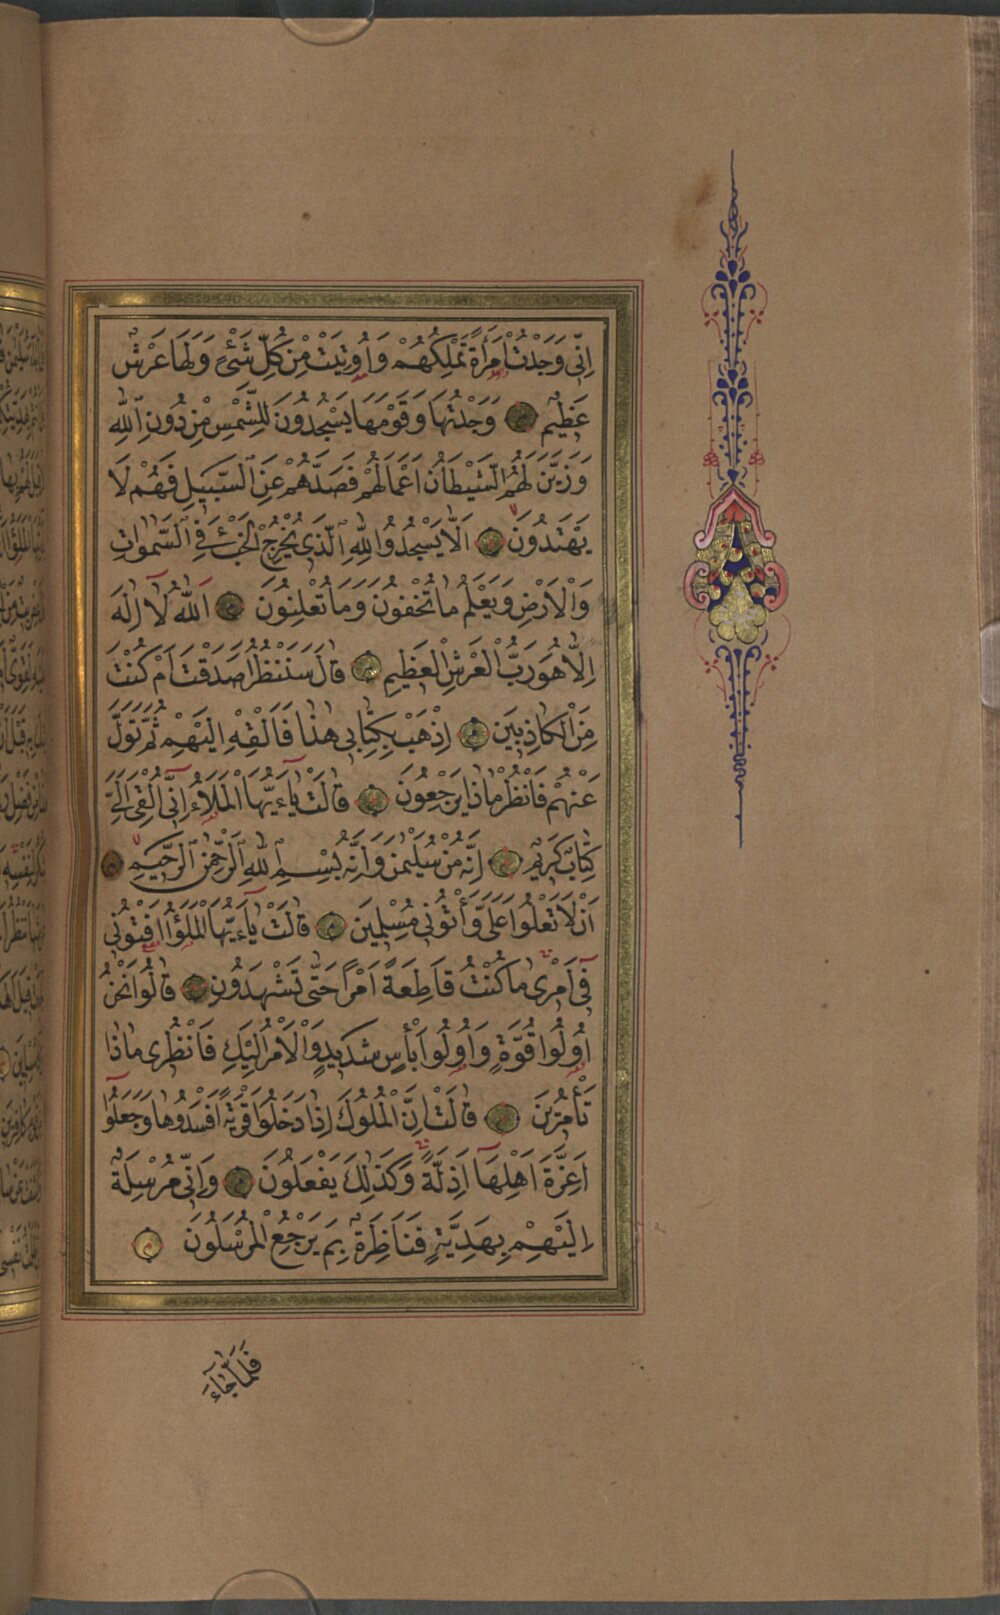 اِنّٖى وَجَدْتُ امْرَاَةً تَمْلِكُهُمْ وَاُوتِيَتْ مِنْ كُلِّ شَىْءٍ وَلَهَا عَرْشٌ
عَظٖيمٌ وَجَدْتُهَا وَقَوْمَهَا يَسْجُدُونَ لِلشَّمْسِ مِنْ دُونِ اللّٰهِ
وَزَيَّنَ لَهُمُ الشَّيْطَانُ اَعْمَالَهُمْ فَصَدَّهُمْ عَنِ السَّبٖيلِ فَهُمْ لَا
يَهْتَدُونَ اَلَّا يَسْجُدُوا لِلّٰهِ الَّذٖى يُخْرِجُ الْخَبْءَ فِى السَّمٰوَاتِ
وَالْاَرْضِ وَيَعْلَمُ مَا تُخْفُونَ وَمَا تُعْلِنُونَ اَللّٰهُ لَا اِلٰهَ
اِلَّا هُوَ رَبُّ الْعَرْشِ الْعَظٖيمِ قَالَ سَنَنْظُرُ اَصَدَقْتَ اَمْ كُنْتَ
مِنَ الْكَاذِبٖينَ اِذْهَبْ بِكِتَابٖى هٰذَا فَاَلْقِهْ اِلَيْهِمْ ثُمَّ تَوَلَّ
عَنْهُمْ فَانْظُرْ مَاذَا يَرْجِعُونَ قَالَتْ يَاءَيُّهَا الْمَلَاُ اِنّٖى اُلْقِىَ اِلَىَّ
كِتَابٌ كَرٖيمٌ اِنَّهُ مِنْ سُلَيْمٰنَ وَاِنَّهُ بِسْمِ اللّٰهِ الرَّحْمٰنِ الرَّحٖيمِ
اَنْ لَا تَعْلُوا عَلَىَّ وَأْتُونٖى مُسْلِمٖينَ قَالَتْ يَاءَيُّهَا الْمَلَؤُا اَفْتُونٖى
فٖى اَمْرٖى مَا كُنْتُ قَاطِعَةً اَمْرًا حَتّٰى تَشْهَدُونِ قَالُوا نَحْنُ
اُولُوا قُوَّةٍ وَاُولُوا بَأْسٍ شَدٖيدٍ وَالْاَمْرُ اِلَيْكِ فَانْظُرٖى مَاذَا
تَأْمُرٖينَ قَالَتْ اِنَّ الْمُلُوكَ اِذَا دَخَلُوا قَرْيَةً اَفْسَدُوهَا وَجَعَلُوا
اَعِزَّةَ اَهْلِهَا اَذِلَّةً وَكَذٰلِكَ يَفْعَلُونَ وَاِنّٖى مُرْسِلَةٌ
اِلَيْهِمْ بِهَدِيَّةٍ فَنَاظِرَةٌ بِمَ يَرْجِعُ الْمُرْسَلُونَ
فَلَمَّا جَاءَ